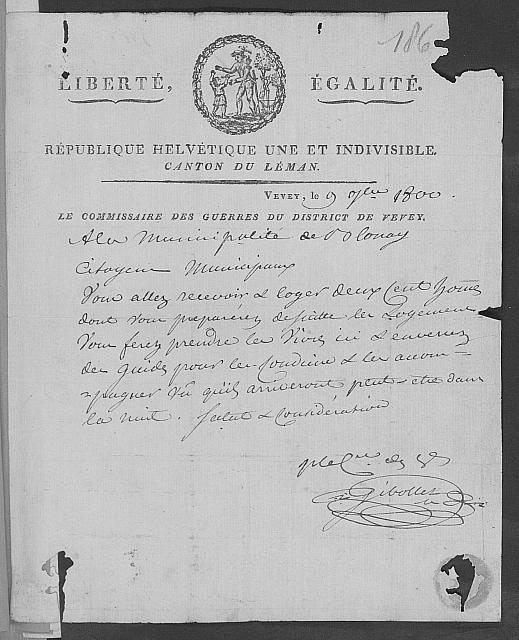 186
LIBERTÉ, ÉGALITÉ.
RÉPUBLIQUE HELVÉTIQUE UNE ET INDIVISIBLE.
CANTON DU LÉMAN.
VEVEY, le 9 7bre 1800.
LE COMMISSAIRE DES GUERRES DU DISTRICT DE VEVEY.
A la Municipalité de Blonay
Citoyens Municipaux
Vous allez recevoir & loger deux Cent hom̃es
dont vous preparérez de suitte les Logemens
Vous ferez prendre les Vivres ici & enverrez
des Guides pour les Conduire & les accom=
=pagner Vû qu'ils arriveront peut-etre dans
la nuit. Salut & Considération
ple Cre des
Gibollet